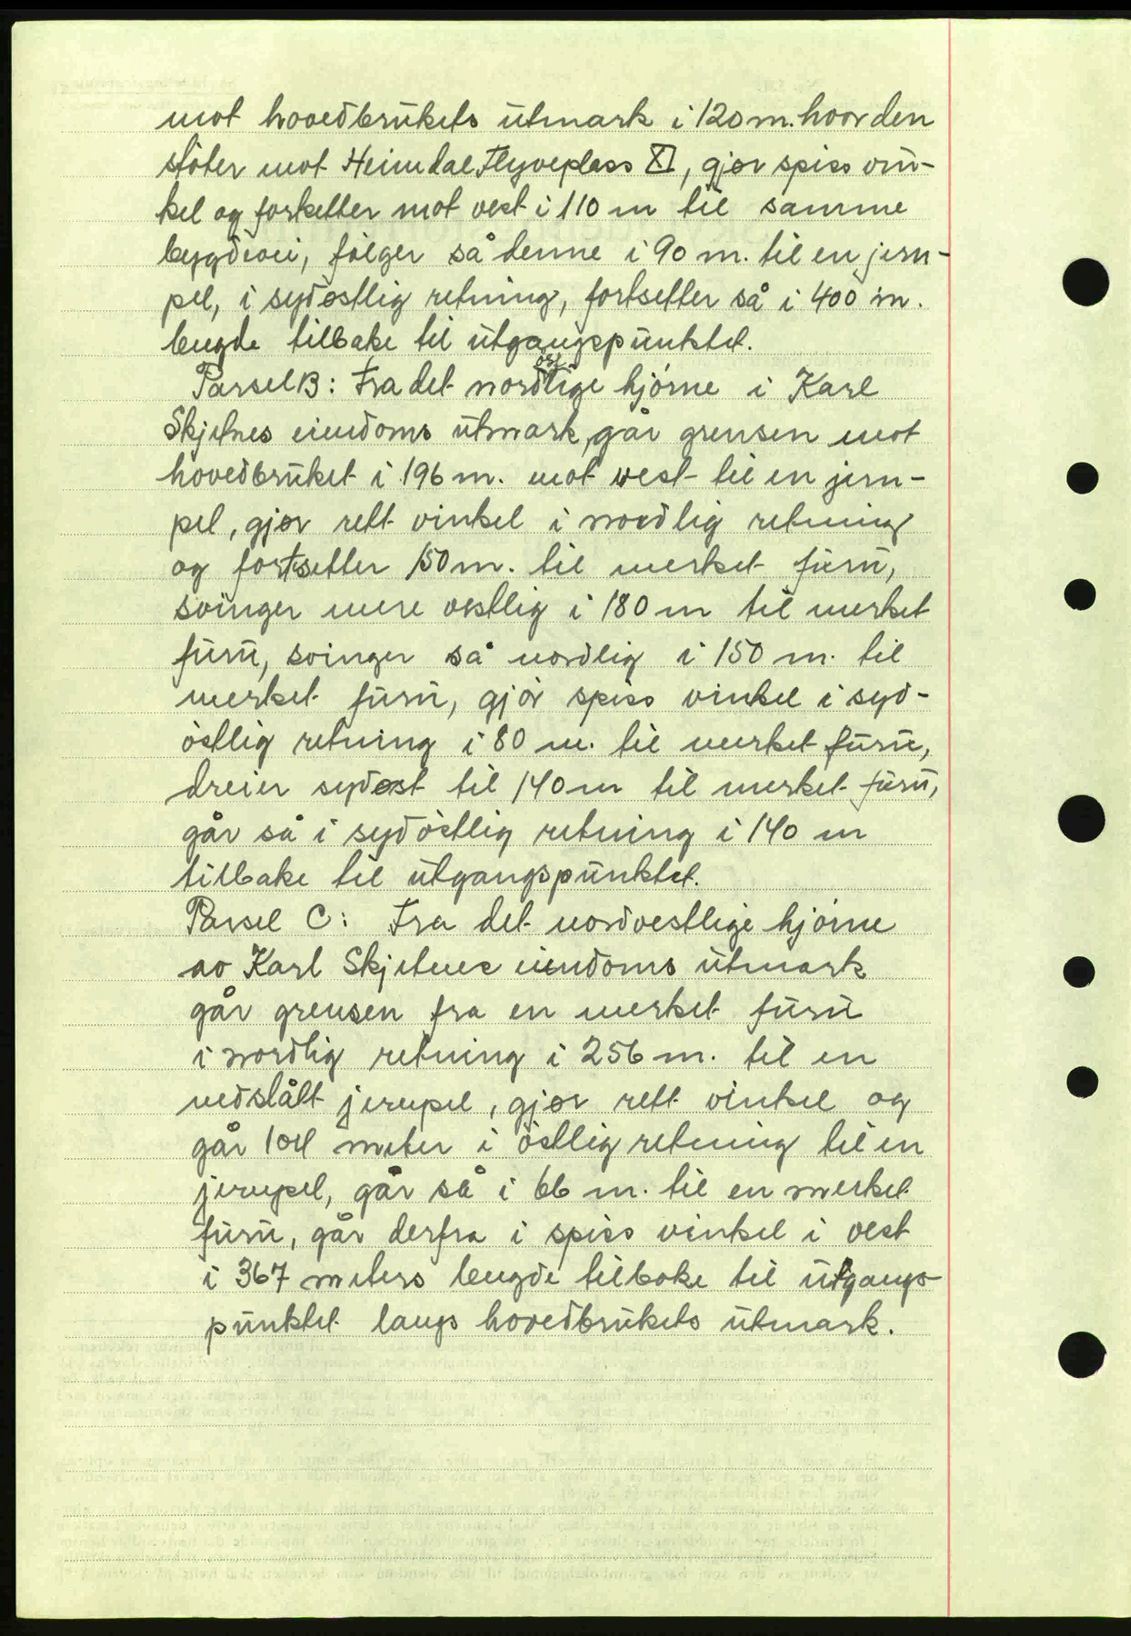 mot hovedbrukets utmark i 120 m. hvor den
støter mot Heimdal Flyveplass XI, gjør spiss vin-
kel og forsetter mot vest i 110 m til samme
bygdevei, følger så denne i 90 m. til en jern-
pel, i sydøstlig retning, fortsetter så i 400 m.
lengde tilbake til utgangspunktet.
Parsel B: Fra det nordøstlige hjørne i Karl
Skjetnes eiendoms utmark, går grensen mot
hovedbruket i 196 m. mot vest til en jern-
pel, gjør rett vinkel i nordlig retning
og fortsetter 150 m. til merket furu,
svinger mere vestlig i 180 m til merket
furu, svinger så nordlig i 150 m. til
merket furu, gjør spiss vinkel i syd-
østlig retning i 80 m. til merket furu,
dreier sydøst til 140 m til merket furu,
går så i sydøstlig retning i 140 m
tilbake til utgangspunktet.
Parsel C: Fra det nordvestlige hjørne
av Karl Skjetnes eiendoms utmark
går grensen fra en merket furu
i nordlig retning i 256 m. til en
nedslått jernpel, gjør rett vinkel og
går meter i østlig retning til en
jernpel, går så i 66 m. til en merket
furu, går derfra i spiss vinkel i vest
i 367 meters lengde tilbake til utgangs-
punktet langs hovedbrukets utmark.